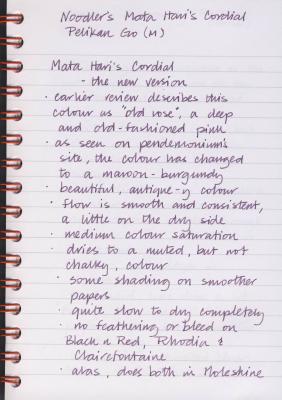 Noodler's Mata Hari's Cordial
Pelikan Go (M)
Mata Hari's Cordial
- the new version
· earlier review describes this
colour as "old rose", a deep
and old-fashioned pink
· as seen on pendemonium's
site, the colour has changed
to a maroon-burgundy
· beautiful, antique-y colour
· flow is smooth and consistent,
a little on the dry side
· medium colour saturation
· dries to a muted, but not
chalky, colour
· some shading on smoother
papers
· quite slow to dry completely
· no feathering or bleed on
Black n Red, Rhodia &
Clairefontaine
· alas, does both in Moleskine